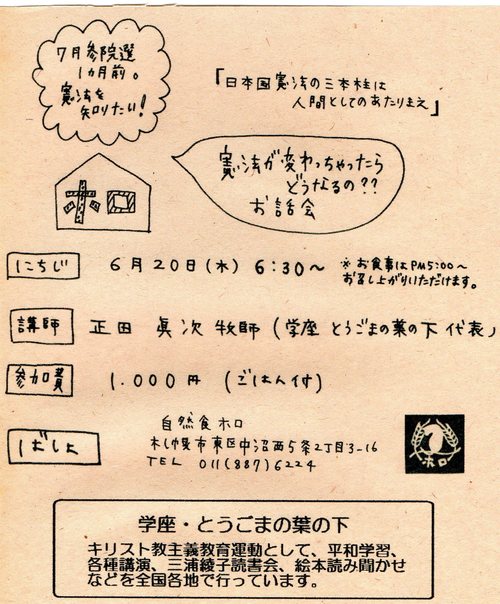 7月参院選
1ヵ月前。
憲法を
知りたい!
「日本国憲法の三本柱は
人間としてのあたりまえ」
憲法が変わっちゃったら
どうなるの??
お話会
にちじ
6月20日(木) 6:30〜
※お食事はPM5:00〜
お召し上がりいただけます。
講師
正田 眞次 牧師 (学座 とうごまの葉の下 代表)
参加費
1.000円 (ごはん付)
ばしょ
自然食ホロ
札幌市東区中沼西5条2丁目3-16
TEL 011(887)6224
ホロ
学座・とうごまの葉の下
キリスト教主義教育運動として、平和学習、
各種講演、三浦綾子読書会、絵本読み聞かせ
などを全国各地で行っています。